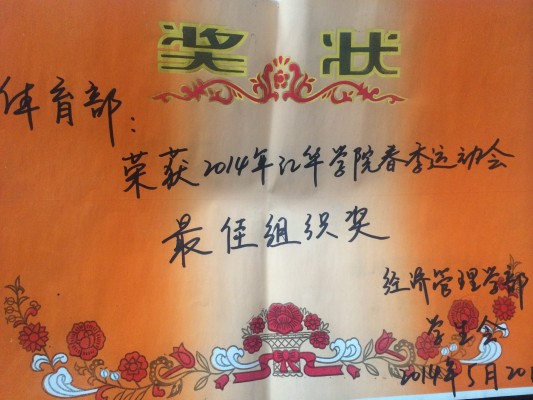 奖状
体育部：
荣获2014年江华学院春季运动会
最佳组织奖
经济管理学部
学生会
2014年5月20